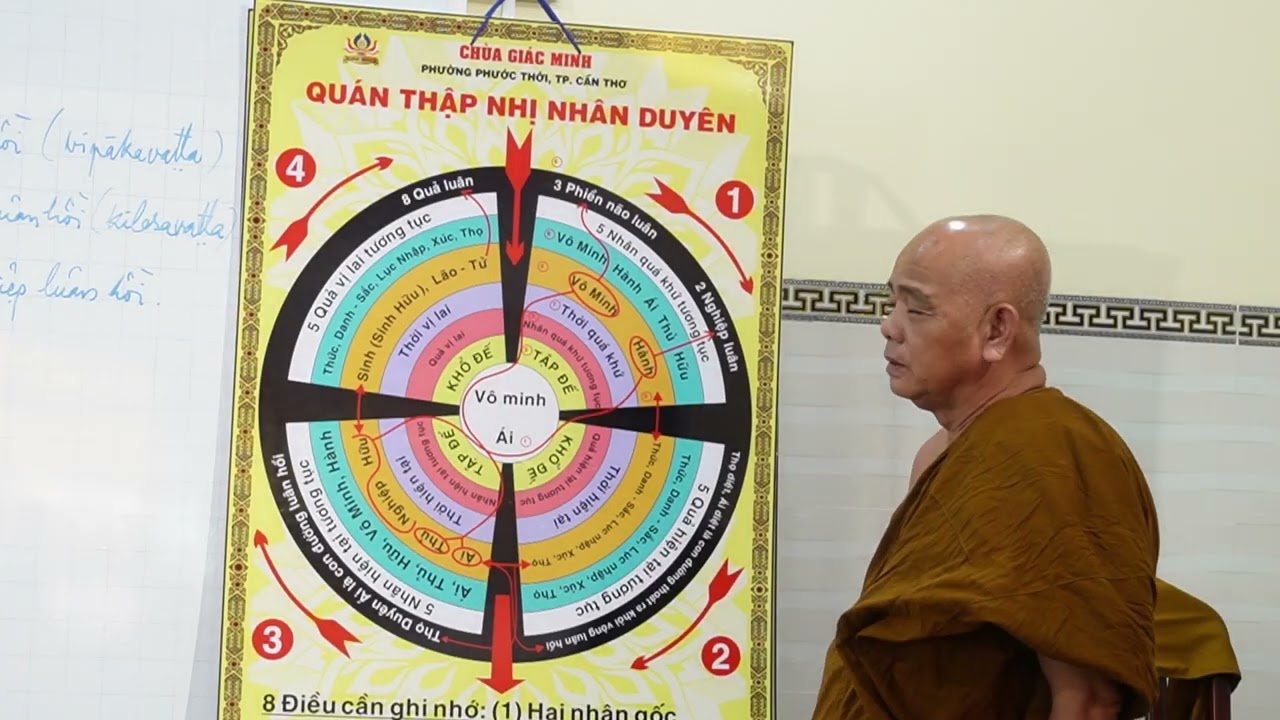 CHÙA GIÁC MINH
PHƯỜNG PHƯỚC THỚI, TP. CẦN THƠ
QUÁN THẬP NHỊ NHÂN DUYÊN
(vipākavaṭṭa)
luân hồi.
4
8 Quả luân
5 Quả vị lai tương tục
Thức, Danh - Sắc, Lục Nhập, Xúc, Thọ
Sinh (Sinh Hữu), Lão - Tử
Thời vị lai
Quả vị lai
KHỔ ĐẾ
1
3 Phiền não luân
2 Nghiệp luân
5 Nhân quá khứ tương tục
Vô Minh, Hành, Ái, Thủ, Hữu
Vô Minh
Hành
Thời quá khứ
Nhân quá khứ tương tục
TẬP ĐẾ
Vô minh
Ái
3
Thọ Duyên Ái là con đường luân hồi
5 Nhân hiện tại tương tục
Ái, Thủ, Hữu, Vô Minh, Hành
Ái Thủ Nghiệp Hữu
Thời hiện tại
Nhân hiện tại tương tục
TẬP ĐẾ
2
Thọ diệt, Ái diệt là con đường thoát ra khỏi vòng luân hồi
5 Quả hiện tại tương tục
Thức, Danh - Sắc, Lục nhập, Xúc, Thọ
Thức, Danh - Sắc, Lục nhập, Xúc, Thọ
Thời hiện tại
Quả hiện tại tương tục
KHỔ ĐẾ
8 Điều cần ghi nhớ: (1) Hai nhân gốc